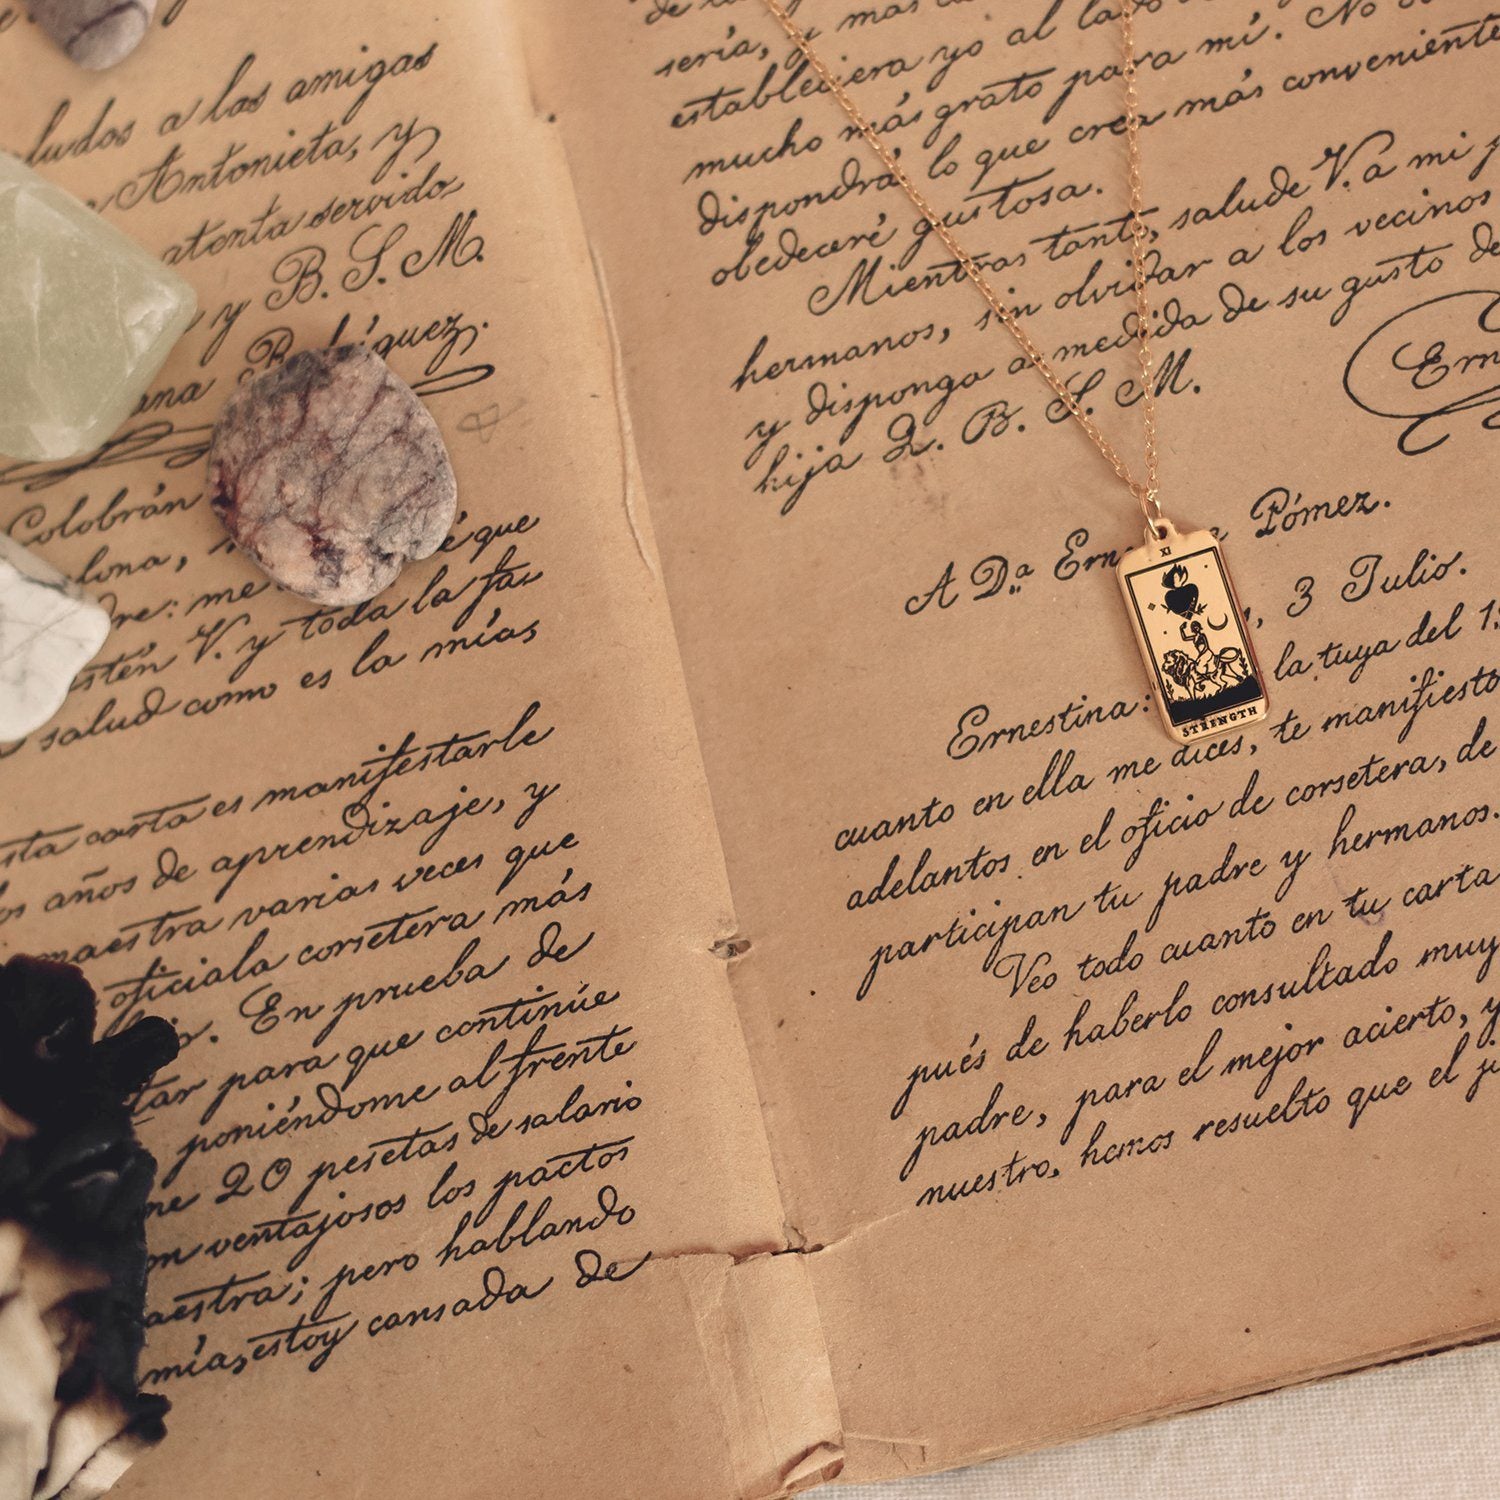 saludos a las amigas
Antonieta, y
atenta servido
y B. S. M.
Rodríguez.
Colobrán
é que
me
estén V. y toda la fa
salud como es la mías
esta carta es manifestarle
los años de aprendizaje, y
maestra varias veces que
oficiala corsetera más
En prueba de
para que continúe
poniéndome al frente
me 20 pesetas de salario
ventajosos los pactos
maestra; pero hablando
mía, estoy cansada de
sería, y mas
estableciera yo al lado
mucho más grato para mí. No
dispondrá lo que crea más conveniente
obedeceré gustosa.
Mientras tanto, salude V. a mi
hermanos, sin olvidar a los vecinos
y disponga a medida de su gusto de
hija Q. B. S. M.
Ern
A D.ª Ern Pómez.
, 3 Julio.
Ernestina: la tuya del
cuanto en ella me dices, te manifiesto
adelantos en el oficio de corsetera, de
participan tu padre y hermanos.
Veo todo cuanto en tu carta
pués de haberlo consultado muy
padre, para el mejor acierto, y
nuestro, hemos resuelto que el
XI
STRENGTH